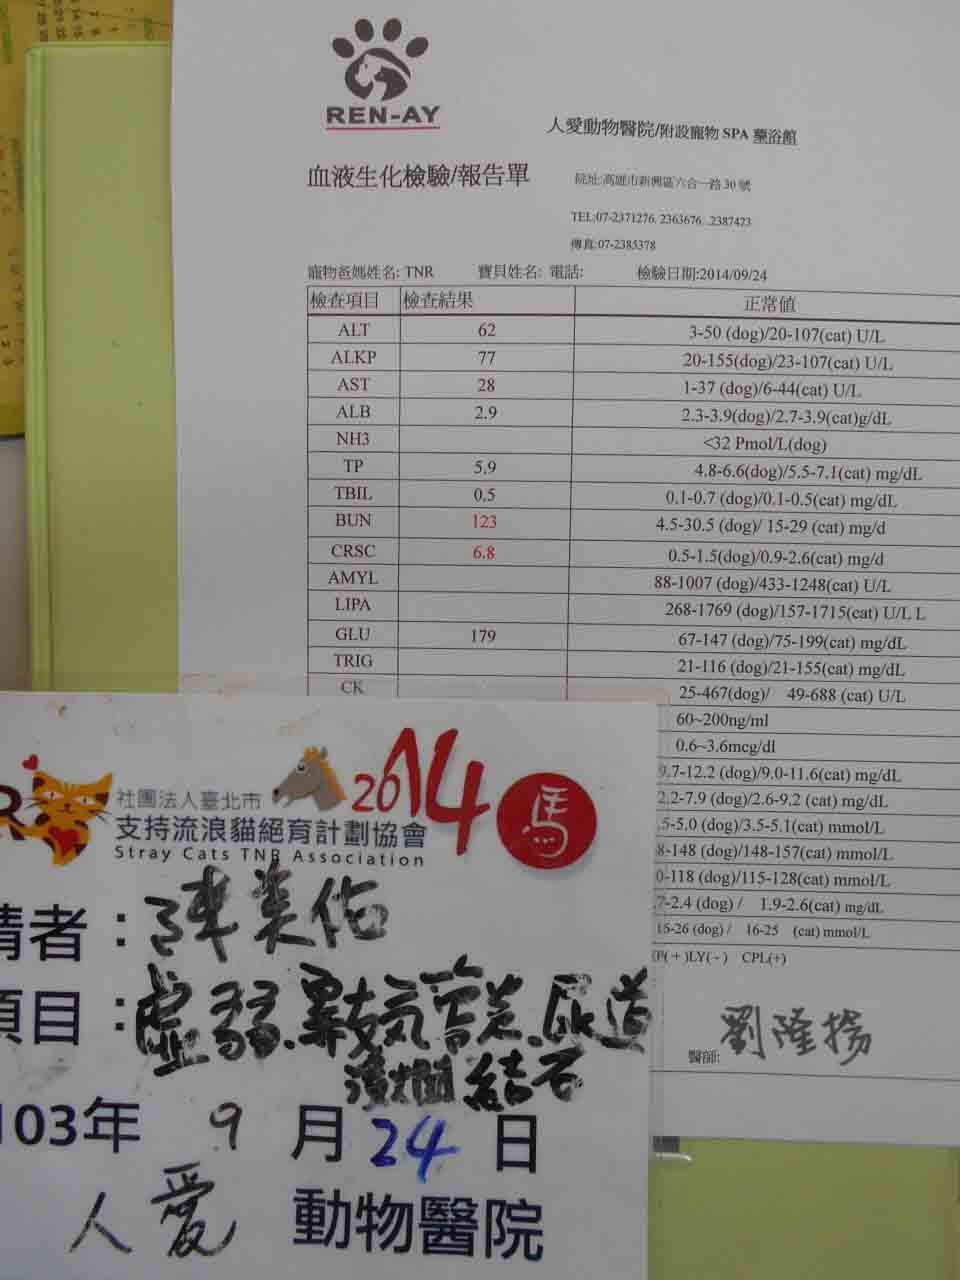 REN-AY
人愛動物醫院/附設寵物 SPA 藥浴館
血液生化檢驗/報告單
院址:高雄市新興區六合一路 30 號
TEL:07-2371276. 2363676. .2387423
傳真:07-2385378
寵物爸媽姓名: TNR 寶貝姓名: 電話: 檢驗日期:2014/09/24
檢查項目 檢查結果 正常值
ALT 62 3-50 (dog)/20-107(cat) U/L
ALKP 77 20-155(dog)/23-107(cat) U/L
AST 28 1-37 (dog)/6-44(cat) U/L
ALB 2.9 2.3-3.9(dog)/2.7-3.9(cat)g/dL
NH3 <32 Pmol/L(dog)
TP 5.9 4.8-6.6(dog)/5.5-7.1(cat) mg/dL
TBIL 0.5 0.1-0.7 (dog)/0.1-0.5(cat) mg/dL
BUN 123 4.5-30.5 (dog)/ 15-29 (cat) mg/d
CRSC 6.8 0.5-1.5(dog)/0.9-2.6(cat) mg/d
AMYL 88-1007 (dog)/433-1248(cat) U/L
LIPA 268-1769 (dog)/157-1715(cat) U/L L
GLU 179 67-147 (dog)/75-199(cat) mg/dL
TRIG 21-116 (dog)/21-155(cat) mg/dL
CK 25-467(dog)/ 49-688 (cat) U/L
60~200ng/ml
0.6~3.6mcg/dl
9.7-12.2 (dog)/9.0-11.6(cat) mg/dL
2.2-7.9 (dog)/2.6-9.2 (cat) mg/dL
.5-5.0 (dog)/3.5-5.1(cat) mmol/L
8-148 (dog)/148-157(cat) mmol/L
0-118 (dog)/115-128(cat) mmol/L
.7-2.4 (dog) / 1.9-2.6(cat) mg/dL
16-26 (dog) / 16-25 (cat) mmol/L
P(+)LY(-) CPL(+)
醫師: 劉隆揚
R
2014
馬
社團法人臺北市
支持流浪貓絕育計劃協會
Stray Cats TNR Association
請者:陳美佑
項目:虛弱.氣管炎.尿道
潰爛 結石
103年 9 月 24 日
人愛 動物醫院